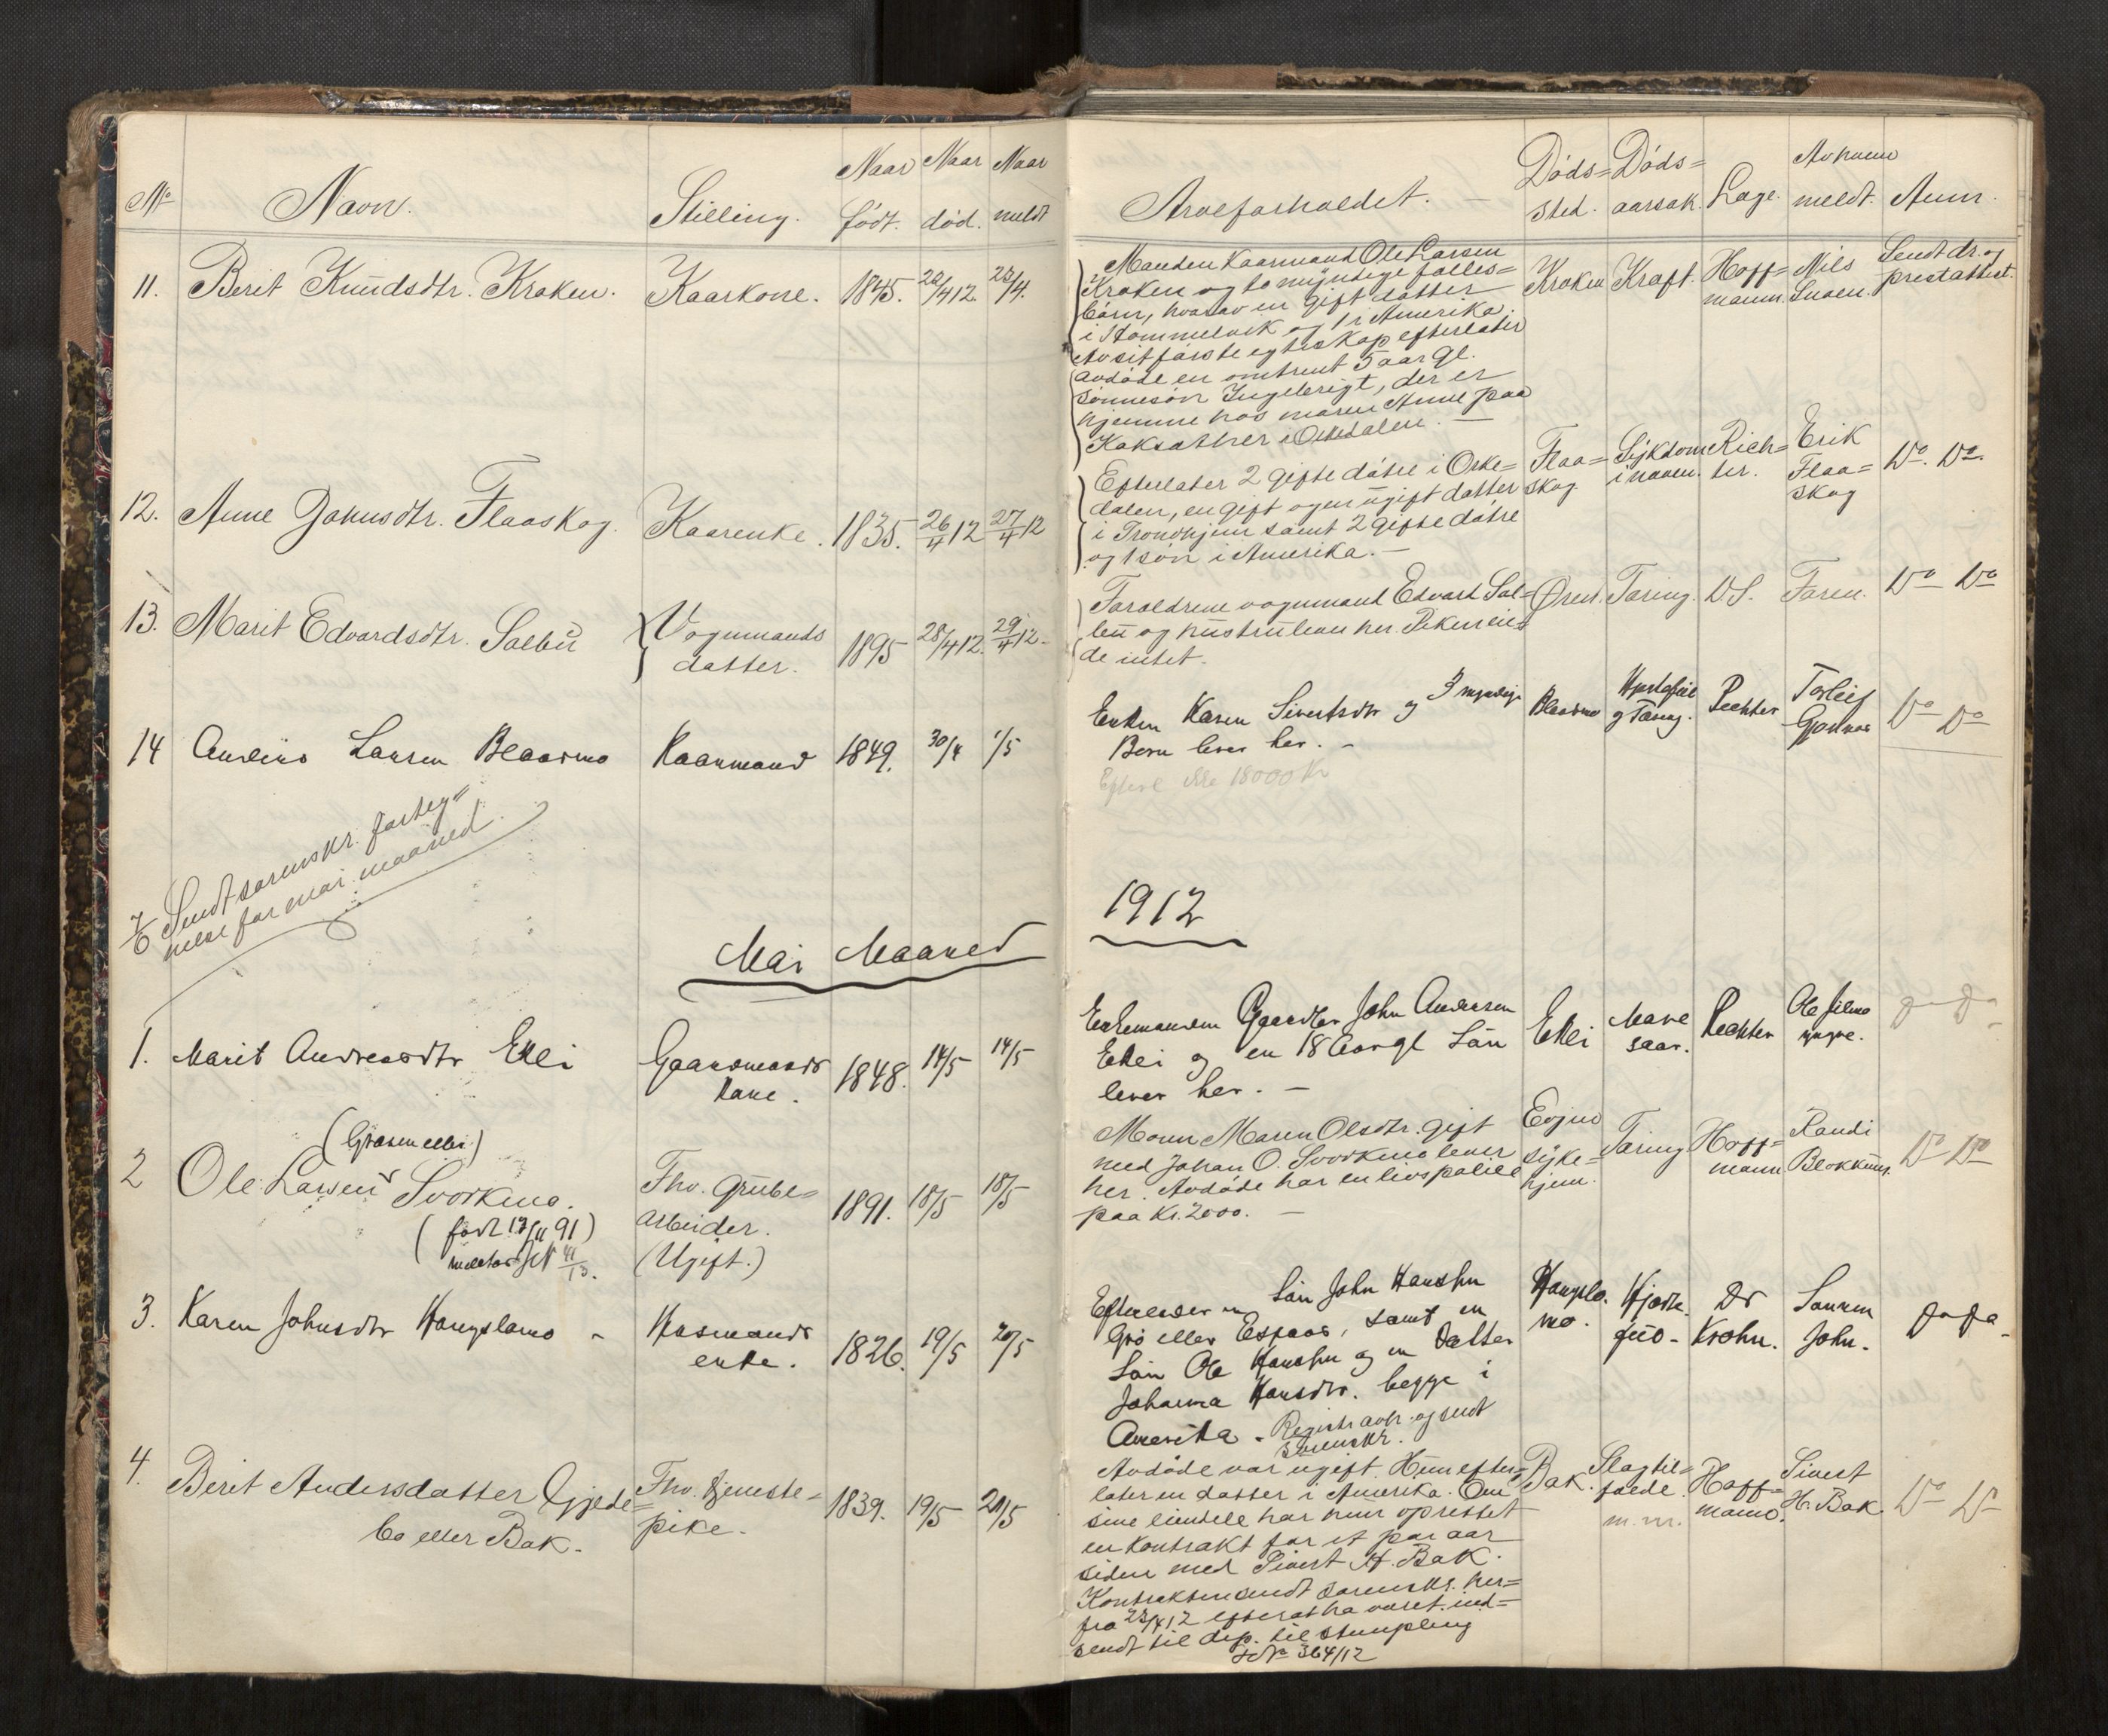 No Navn. Stilling. Naar født. Naar død. Naar meldt Arveforholdet. — Døds= sted. Døds= aarsak. Læge. Av hvem meldt. Anm.
11. Berit Knudsdtr. Kroken. Kaarkone. 1845. 22/4 12. 23/4.
Manden Kaarmand Ole Larsen
Kroken og to myndige fælles=
børn, hvorav en gift datter
i Hommelvik og 1 i Amerika.
Av sit første egteskap efterlater
avdøde en omtrent 5 aar gl.
sønnesøn Ingebrigt, der er
hjemme hos moren Anne paa
Kaksæther i Orkedalen. —
Kroken Kræft. Hoff=
mann. Nils
Snoen. Sendt dr. og
prestattest.
12. Anne Johnsdtr. Flaaskog. Kaarenke. 1835. 26/4 12 27/4 12
Efterlater 2 gifte døtre i Orke=
dalen, en gift og en ugift datter
i Trondhjem samt 2 gifte døtre
og 1 søn i Amerika. —
Flaa=
skog. Sykdom
i maven. Rich=
ter. Erik
Flaa=
skog Do. Do.
13. Marit Edvardsdtr. Solbu Vognmands
datter. 1895 28/4 12. 29/4 12.
Forældrene vognmand Edvard Sol=
bu og hustru lever her. Piken ei=
de intet.
Øren. Tæring. DS. Faren. Do Do
14 Larsen Blaasmo Kaarmand 1849. 30/4 1/5
Enken Karen Sivertsdtr og 3 myndige
Børn lever her. —
Efterl 18000 Kr
Blaasmo Hjertefeil
og Tæring. Rechter Torleif
Do Do
7/6 Sendt sorenskr. forteg=
nelse for mai maaned.
Mai Maaned 1912
1. Marit Andreasdtr Elli Gaardmands
kone. 1848. 14/5 14/5
Enkemanden Gaardbr John Andersen
Elli og en 18 Aar gl Søn
lever her. —
Elli Mave
saar. Rechter Ole
yngre. Do Do
2 (Grøsenellen)
Ole Larsen Svorkmo.
(født 13/11 91)
41/13.
Fhv. grube=
arbeider.
(Ugift.) 1891. 18/5 18/5
Moren Maren Olsdtr. gift
med Johan O. Svorkmo lever
her. Avdøde har en livspolise
paa Kr. 2000. —
Evjen
syke=
hjem. Tæring Hoff=
mann Randi
Blokkum. Do Do
3. Karen Johnsdtr Haugslamo Husmands
enke. 1826. 19/5 20/5
Efterlader en Søn John Hansen
Grø eller Espaas, samt en
Søn Ole Hansen og en Datter
Johanna Hansdtr. begge i
Amerika. Registr avh. og sendt
sorenskr.
Haugsla.
mo. Dr
Krohn. Sønnen
John. Do Do
4. Berit Andersdatter Gjede=
bo eller Bak. Fhv. tjeneste=
pike. 1839. 19/5 20/5
Avdøde var ugift. Hun efter=
later en datter i Amerika. Om
sine eiendele har hun oprettet
en kontrakt for et par aar
siden med Sivert H. Bak.
Kontrakten sendt sorenskr. her=
fra 23/4 12 efter at ha været ind=
sendt til dep. til stempling
J No 364/12
Bak. Slagtil=
fælde
m. m. Hoff=
mann. Sivert
H. Bak. Do Do